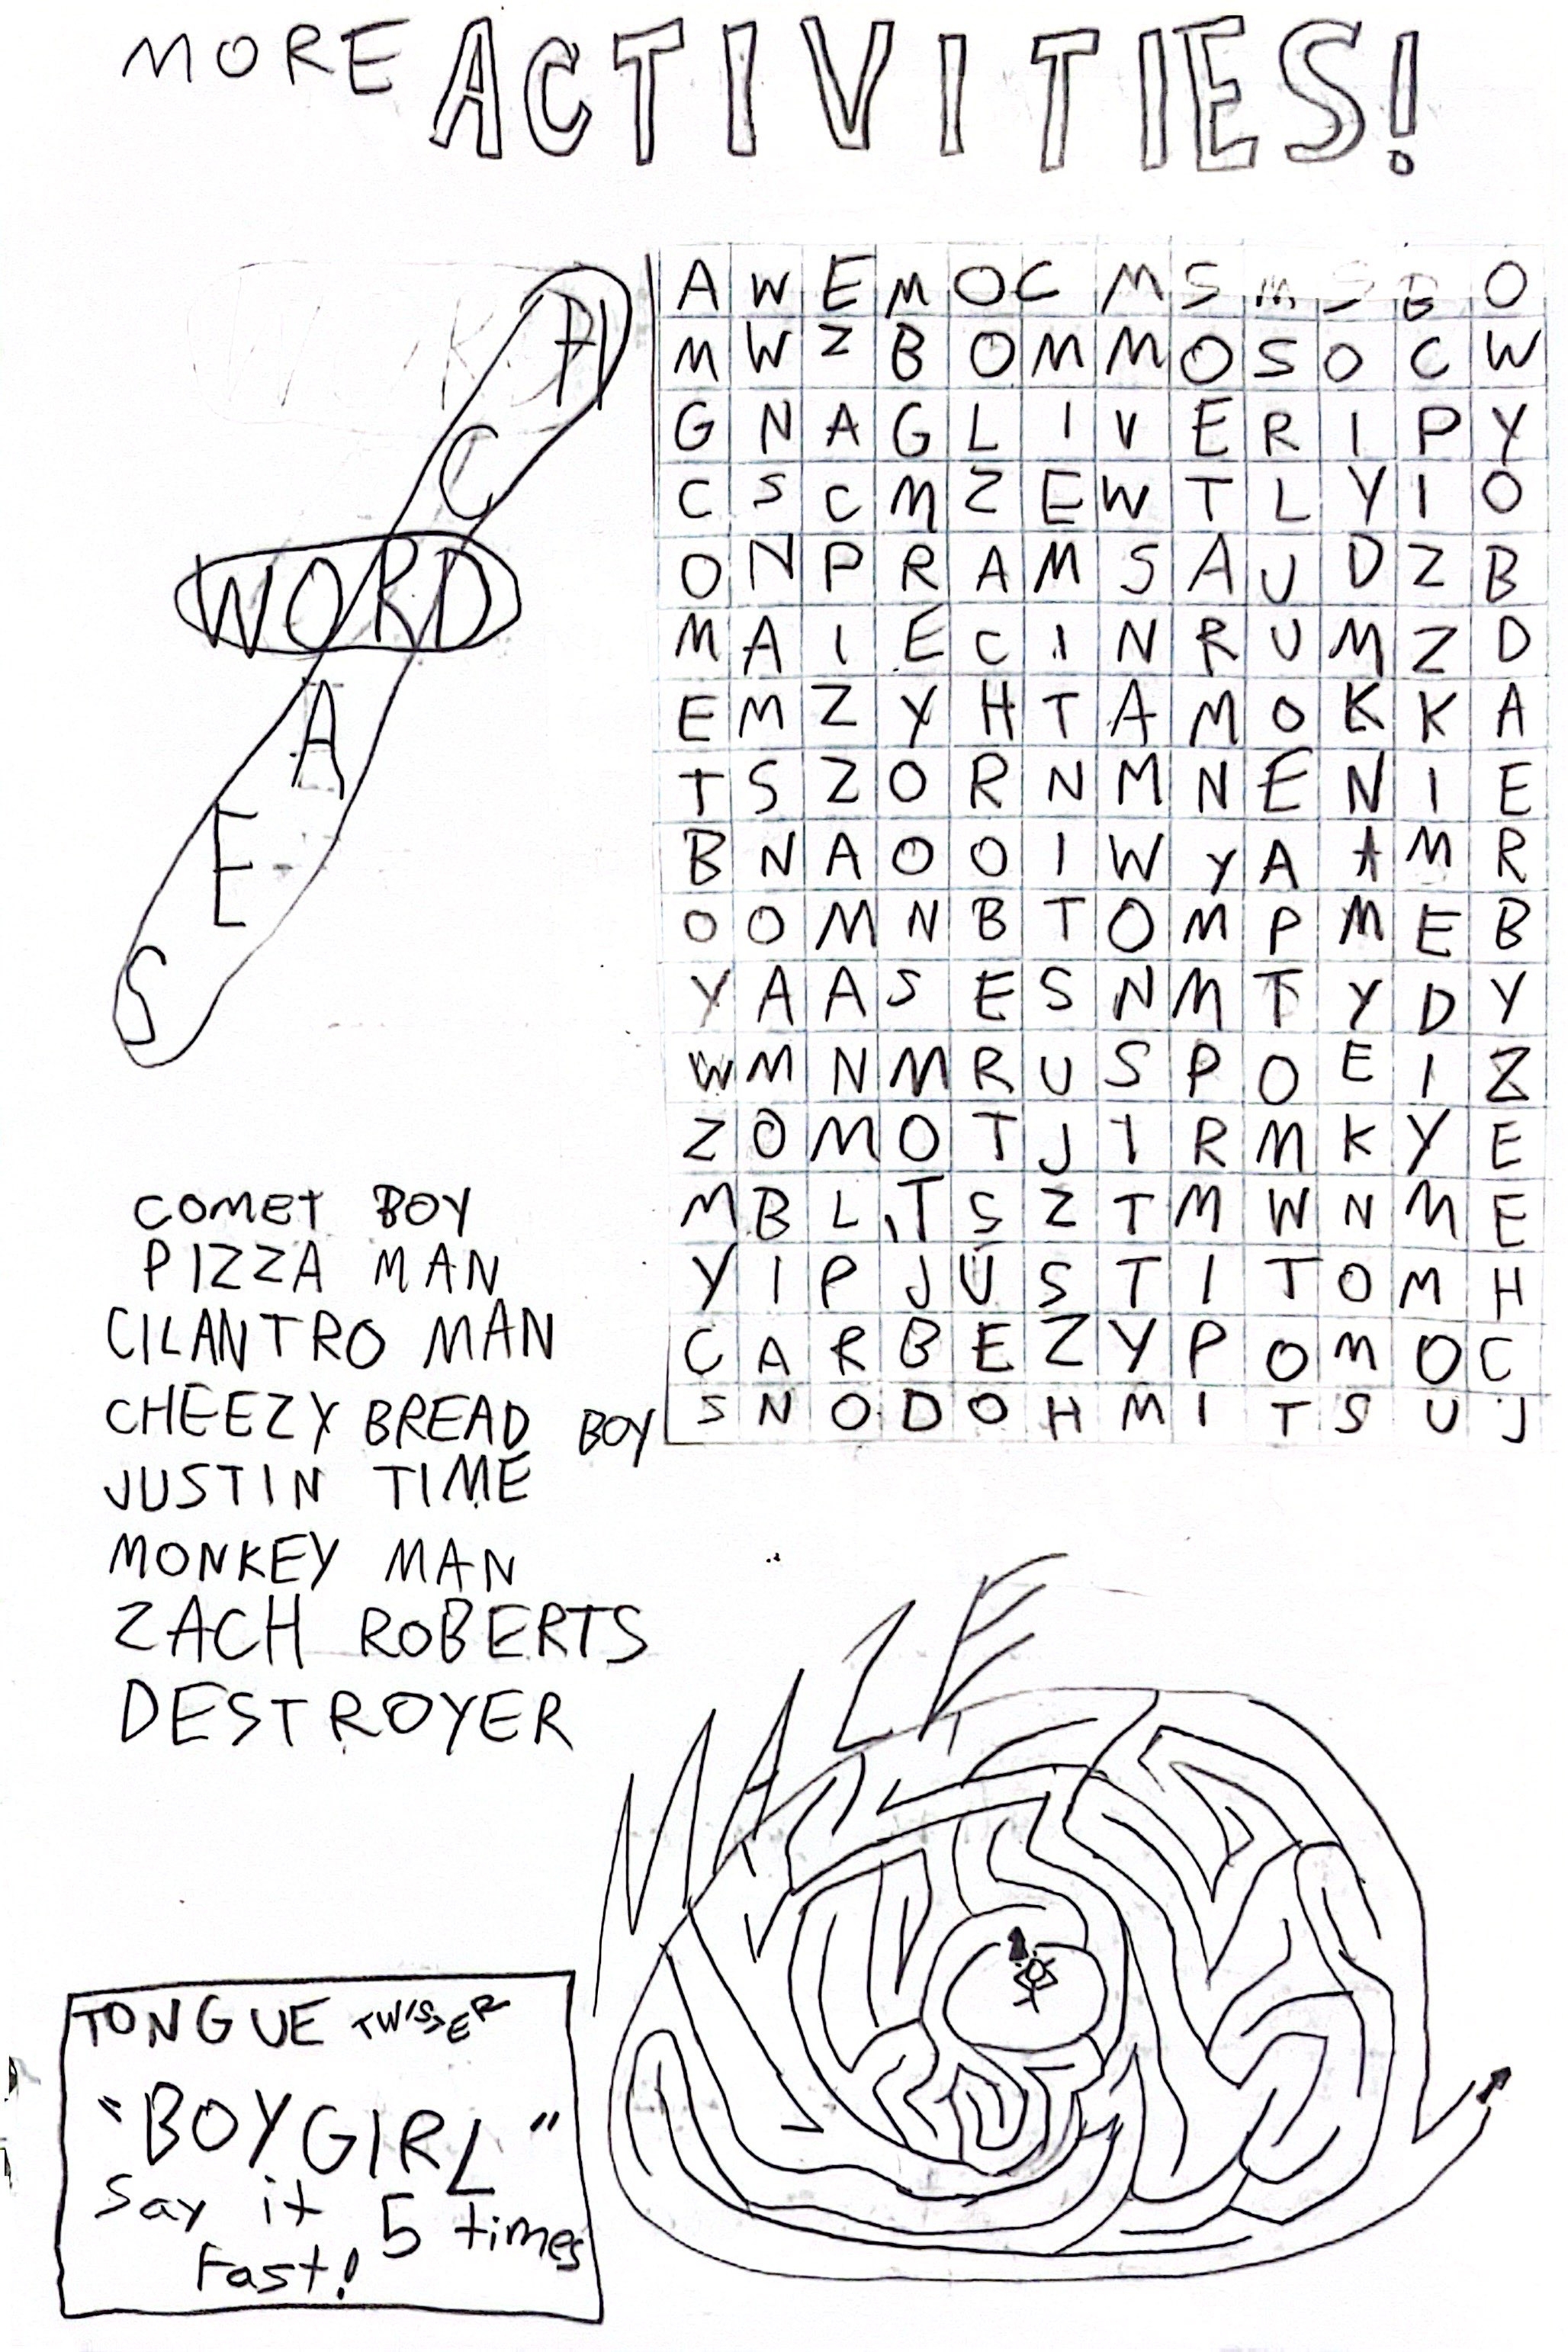 MORE ACTIVITIES!
WORD
SEARCH
A W E M O C M S M S B O
M W Z B O M M O S O C W
G N A G L I V E R I P Y
C S C M Z E W T L Y I O
O N P R A M S A U D Z B
M A I E C I N R U M Z D
E M Z Y H T A M O K K A
T S Z O R N M N E N I E
B N A O O I W Y A A M R
O O M N B T O M P M E B
Y A A S E S N M T Y D Y
W M N M R U S P O E I Z
Z O M O T J I R M K Y E
M B L T S Z T M W N M E
Y I P J U S T I T O M H
C A R B E Z Y P O M O C
S N O D O H M I T S U J
COMET BOY
PIZZA MAN
CILANTRO MAN
CHEEZY BREAD BOY
JUSTIN TIME
MONKEY MAN
ZACH ROBERTS
DESTROYER
MAZE
TONGUE TWISTER
"BOYGIRL"
Say it 5 times
Fast!